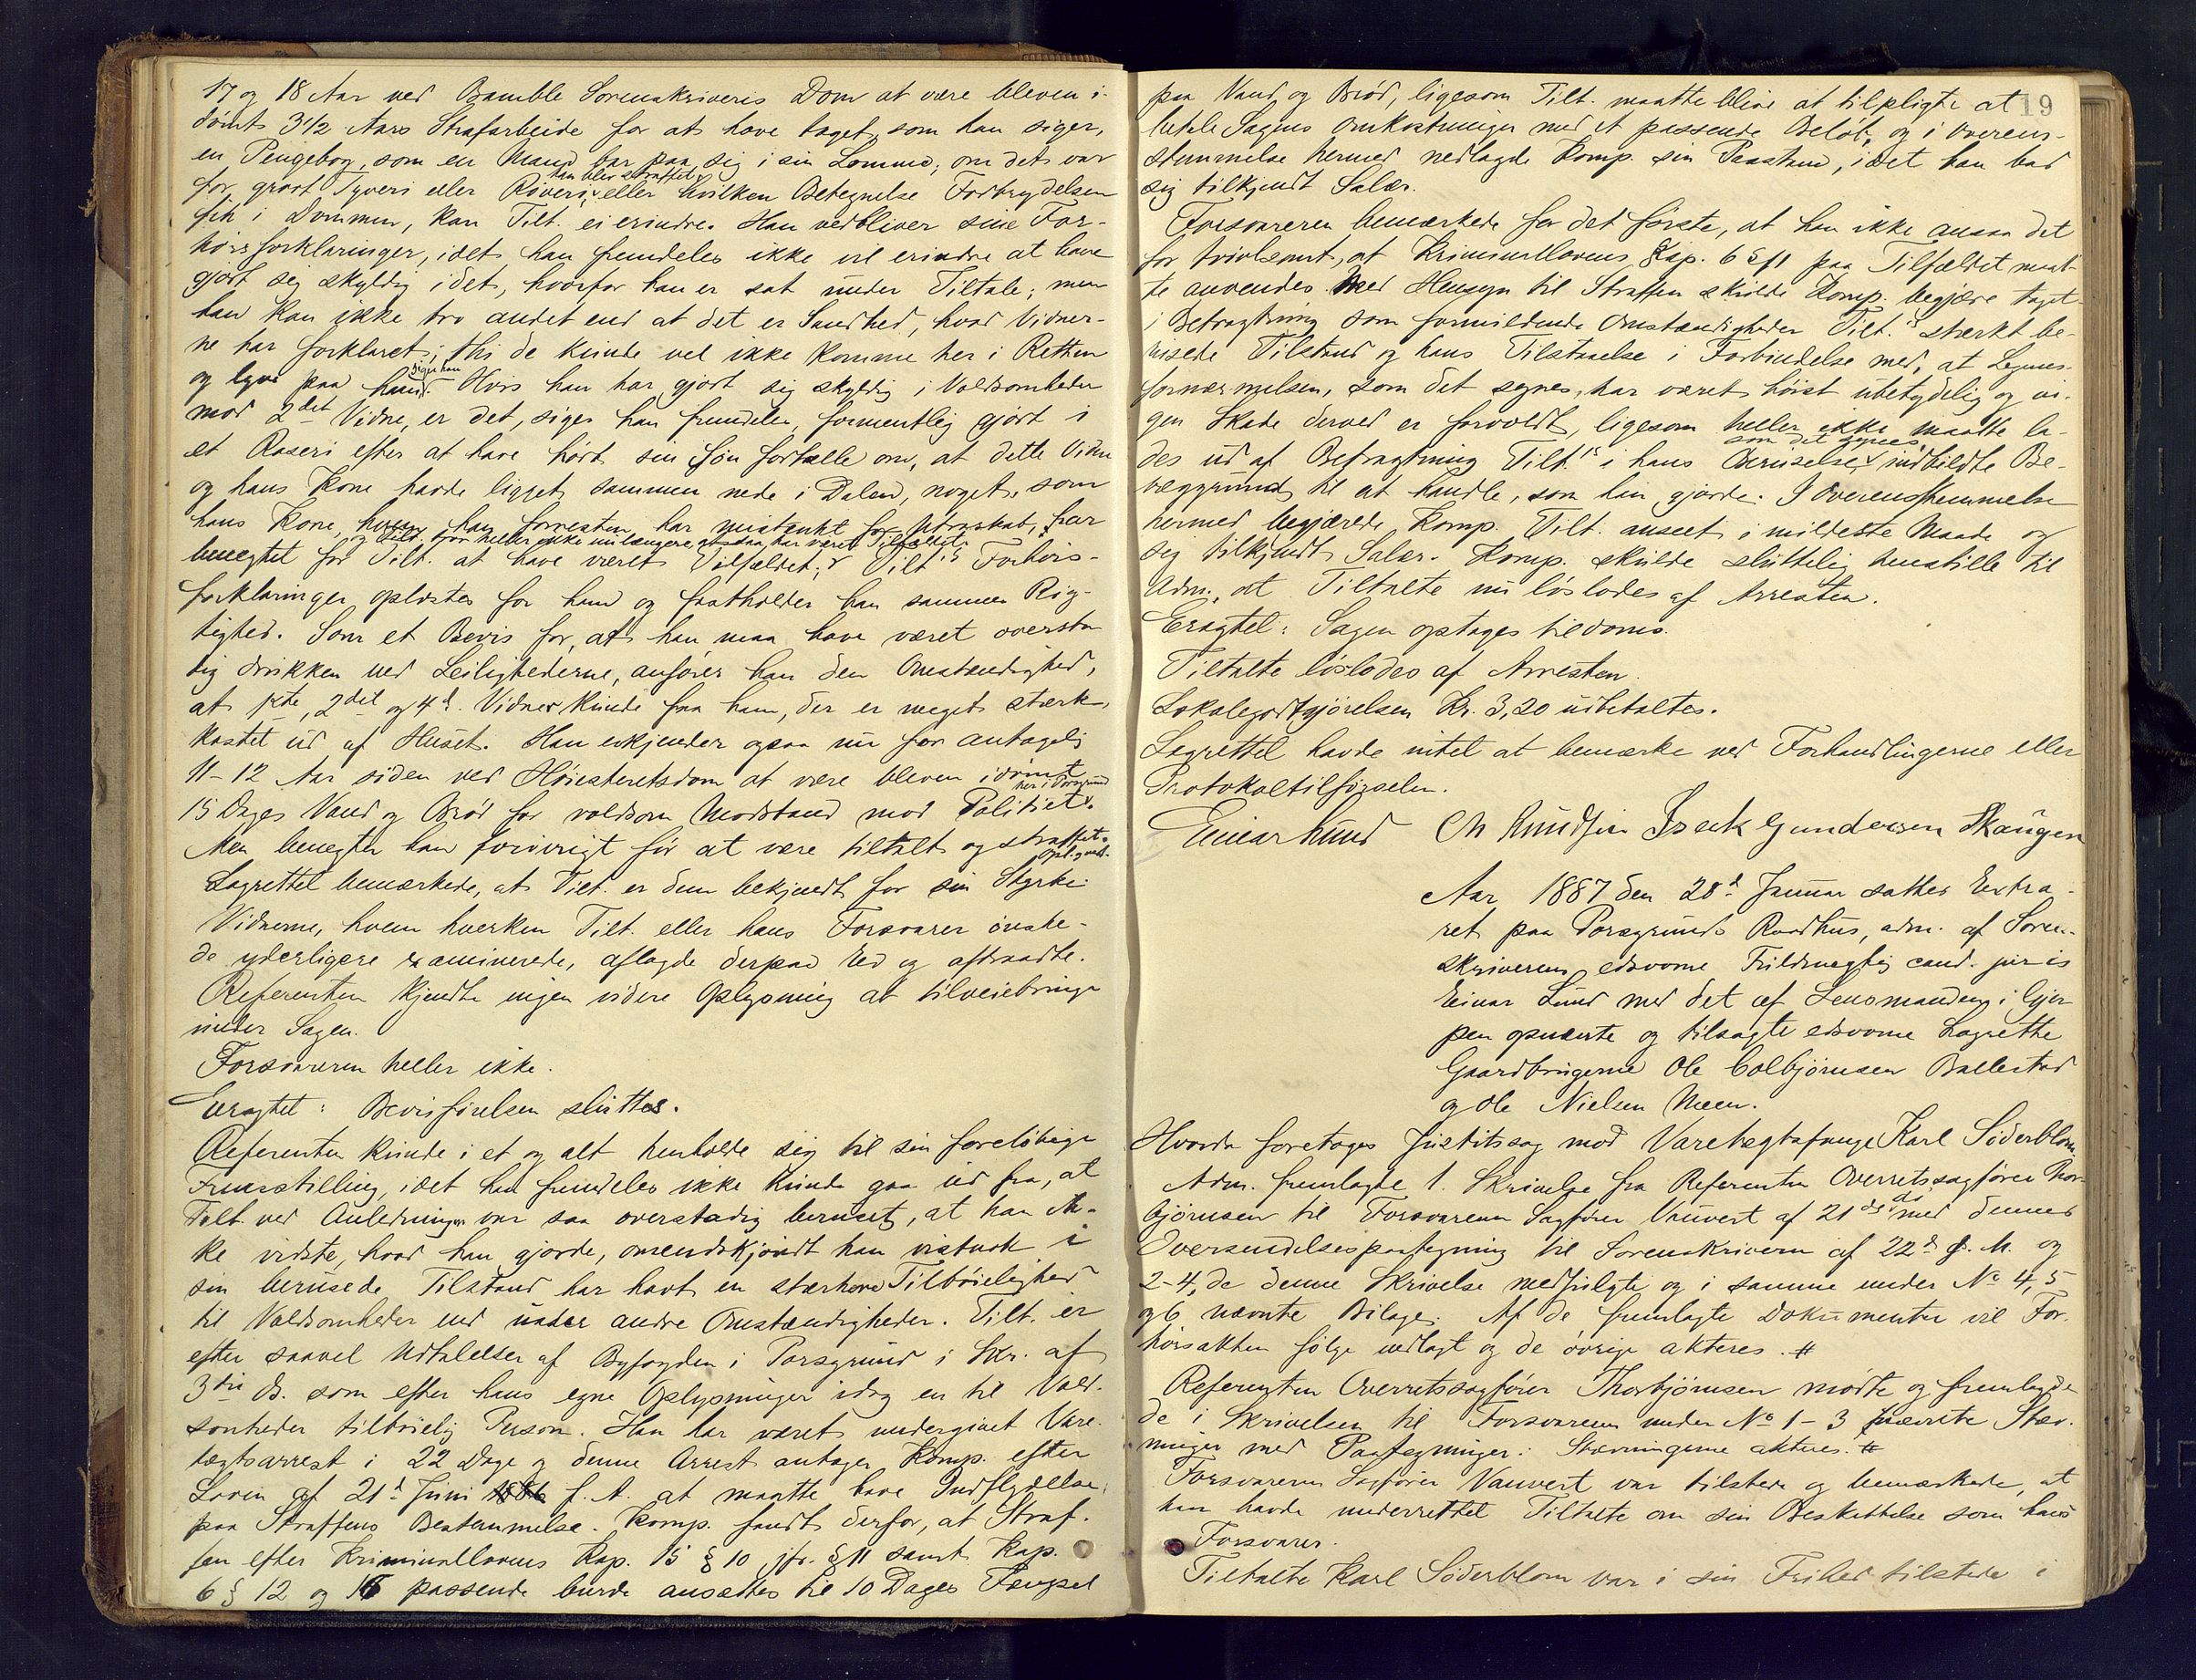 17 og 18 Aar ved Bamble Sorenskriveris Dom at være bleven i-
dømt 3 1/2 Aars Strafarbeide for at have taget, som han siger,
en Pengebog, som en Mand bar paa sig i sin Lomme; om det var
for groft Tyveri eller Røveri, han blev straffet, eller hvilken Betegnelse Forbrydelsen
fik i Dommen, kan Tilt. ei erindre. Han vedbliver sine For-
hørsforklaringer, idet han fremdeles ikke vil erindre at have
gjort sig skyldig i det, hvorfor han er sat under Tiltale; men
han kan ikke tro andet end at det er Sandhed, hvad Vidner-
ne har forklaret; thi de kunde vel ikke komme her i Retten
og lyve paa ham, siger han. Hvis han har gjort sig skyldig i Voldsomheder
mod 2det Vidne, er det, siger han fremdeles, formentlig gjort i
et Raseri efter at have hørt sin Søn fortælle om, at dette Vidne
og hans Kone havde ligget sammen nede i Dalen, noget, som
hans Kone, hvem han forresten har mistænkt for Utroskab, har
benegtet for Tilt. at have været Tilfældet; og Tilt. tror heller ikke nu længere at saa har været Tilfældet. Tilt.s Forhørs-
forklaringer oplæstes for ham og fastholder han sammes Rig-
tighed. Som et Bevis for, at han maa have været oversta-
dig drukken ved Leilighederne, anfører han den Omstændighed,
at 1ste, 2det og 4d. Vidner kunde faa ham, der er meget stærk,
kastet ud af Huset. Han erkjender ogsaa nu for antagelig
11-12 Aar siden ved Høiesteretsdom at være bleven idømt
15 Dages Vand og Brød for voldsom Modstand mod Politiet her i Porsgrund.
Men benegter han forøvrigt før at være tiltalt og straffet.
Lagrettet bemærkede, at Tilt. er dem bekjendt for sin Styrke. Opl. g. ved.
Vidnerne, hvem hverken Tilt. eller hans Forsvarer ønske-
de yderligere examinerede, aflagde derpaa Ed og aftraadte.
Referenten kjendte ingen videre Oplysning at tilveiebringe
under Sagen.
Forsvareren heller ikke.
Eragtet: Bevisførelsen sluttes.
Referenten kunde i et og alt henholde sig til sin foreløbige
Fremstilling, idet han fremdeles ikke kunde gaa ud fra, at
Tilt. ved Anledningen var saa overstadig beruset, at han ik-
ke vidste, hvad han gjorde, omendskjøndt han vistnok i
sin berusede Tilstand har havt en stærkere Tilbøielighed
til Voldsomheder end under andre Omstændigheder. Tilt. er
efter saavel Udtalelser af Byfogden i Porsgrund i Skr. af
3die ds. som efter hans egne Oplysninger idag en til Vold-
somheder tilbøielig Person. Han har været undergivet Vare-
tægtsarrest i 22 Dage og denne Arrest antager Komp. efter
Loven af 21d. Juni f. A. at maatte have Indflydelse
paa Straffens Bestemmelse. Komp. fandt derfor, at Straf-
fen efter Kriminallovens Kap. 15 § 10 jfr. § 11 samt Kap.
6 § 12 og 16 passende burde ansættes til 10 Dages Fængsel
19
paa Vand og Brød, ligesom Tilt. maatte blive at tilpligte at
betale Sagens Omkostninger med et passende Beløb, og i Overens-
stemmelse hermed nedlagde Komp. sin Paastand, idet han bad
sig tilkjendt Salær.
Forsvareren bemærkede for det første, at han ikke ansaa det
for tvivlsomt, at Kriminallovens Kap. 6 § 11 paa Tilfældet maat-
te anvendes. Med Hensyn til Straffen skulde Komp. begjære taget
i Betragtning som formildende Omstændigheder Tilt.s stærkt be-
rusede Tilstand og hans Tilstaaelse i Forbindelse med, at Legems-
fornærmelsen, som det synes, har været høist ubetydelig og in-
gen Skade derved er forvoldt, ligesom heller ikke maatte la-
des ud af Betragtning Tilt.s i hans Beruselse, som det synes, indbildte Be-
væggrund til at handle, som han gjorde. I Overensstemmelse
hermed begjærede Komp. Tilt. anseet i mildeste Maade og
sig tilkjendt Salær. Komp. skulde sluttelig henstille til
Adm., at Tiltalte nu løslodes af Arresten.
Eragtet: Sagen optages til doms.
Tiltalte løslodes af Arresten.
Lokalegodtgjørelsen Kr. 3,20 udbetaltes.
Lagrettet havde intet at bemærke ved Forhandlingerne eller
Protokoltilførselen.
Einar Lund Ch Knudsen Isak Gundersen Skaugen
Aar 1887 den 28d. Januar sattes Extra-
ret paa Porsgrunds Raadhus, adm. af Soren-
skriverens edsvorne Fuldmægtig cand. juris
Einar Lund med det af Lensmanden i Gjer-
pen opnævnte og tilsagte edsvorne Lagrette
Gaardbrugerne Ole Colbjørnsen Ballestad
og Ole Nielsen Meen.
Hvorda foretoges Justitssag mod Varetægtsfange Karl Söderblom.
Adm. fremlagde 1. Skrivelse fra Referenten Overretssagfører Thor-
bjørnsen til Forsvareren Sagfører Vauvert af 21de ds. med dennes
Oversendelsespaategning til Sorenskriveren af 22d. d. M. og
2-4, de denne Skrivelse medfulgte og i samme under No 4, 5
og 6 nævnte Bilage. Af de fremlagte Dokumenter vil For-
hørsakten følge vedlagt og de øvrige akteres. #
Referenten Overretssagfører Thorbjørnsen mødte og fremlagde
de i Skrivelsen til Forsvareren under No 1-3 nævnte Stæv-
ninger med Paategninger: Stævningerne akteres. #
Forsvareren Sagfører Vauvert var tilstede og bemærkede, at
han havde underrettet Tiltalte om sin Beskikkelse som hans
Forsvarer.
Tiltalte Karl Söderblom var i sin Frihed tilstede i